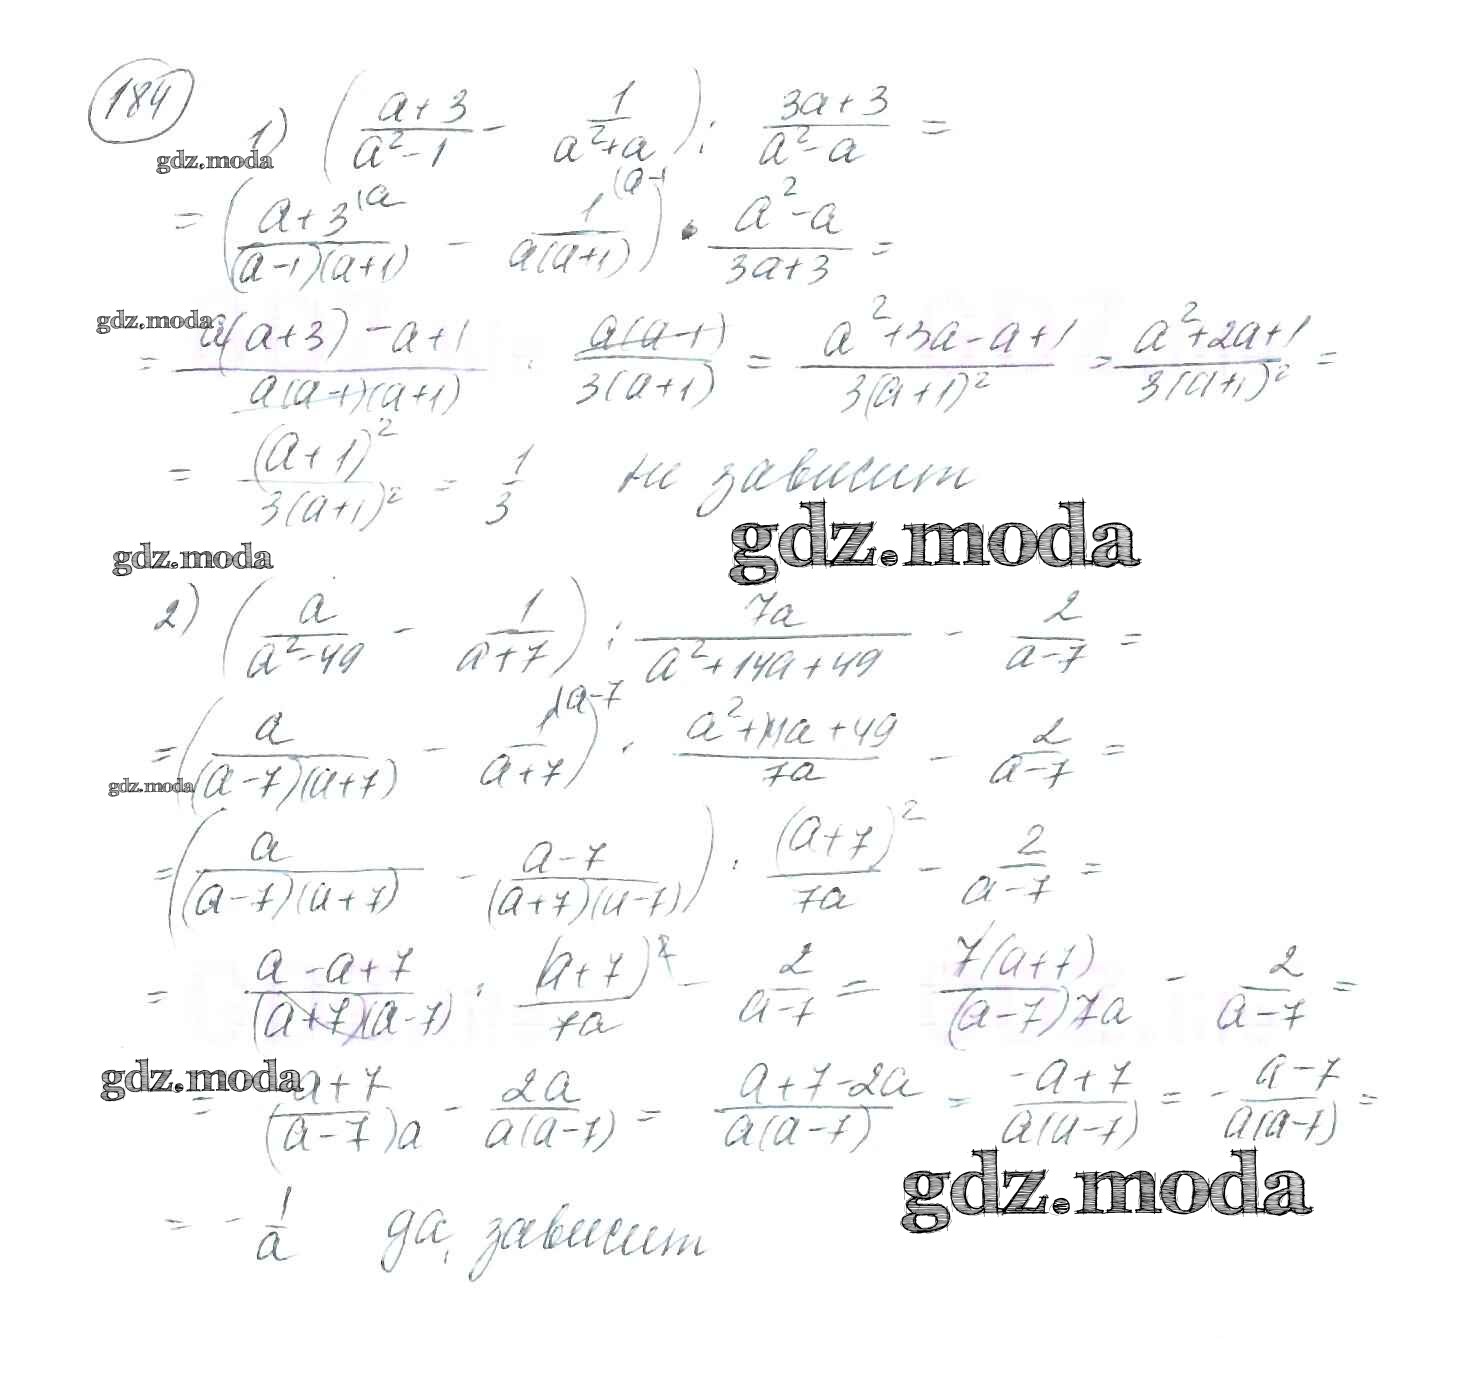 184
1) ((a+3)/(a²-1) - 1/(a²+a)) : (3a+3)/(a²-a) =
gdz.moda
= ((a+3)/((a-1)(a+1)) |a - 1/(a(a+1)) |a-1) · (a²-a)/(3a+3) =
gdz.moda
= (a(a+3) - a+1)/(a(a-1)(a+1)) · (a(a-1))/(3(a+1)) = (a²+3a-a+1)/(3(a+1)²) = (a²+2a+1)/(3(a+1)²) =
= (a+1)²/(3(a+1)²) = 1/3 не зависит
gdz.moda
gdz.moda
2) (a/(a²-49) - 1/(a+7)) : 7a/(a²+14a+49) - 2/(a-7) =
= (a/((a-7)(a+7)) - 1/(a+7) |a-7) · (a²+14a+49)/(7a) - 2/(a-7) =
gdz.moda
= (a/((a-7)(a+7)) - (a-7)/((a+7)(a-7))) · (a+7)²/(7a) - 2/(a-7) =
= (a-a+7)/((a+7)(a-7)) · (a+7)²/(7a) - 2/(a-7) = 7(a+7)/((a-7)7a) - 2/(a-7) =
gdz.moda
= (a+7)/((a-7)a) - 2a/(a(a-7)) = (a+7-2a)/(a(a-7)) = (-a+7)/(a(a-7)) = - (a-7)/(a(a-7)) =
gdz.moda
= - 1/a да, зависит